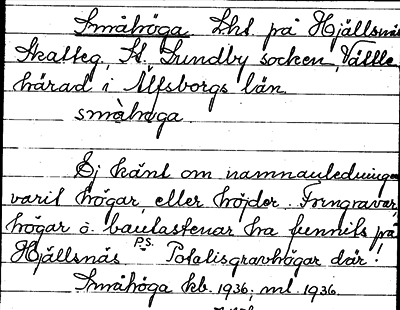 Småhöga Lht. på Hjällsnäs
Skatteg, St. Lundby socken, Vättle
härad i Älfsborgs län.
småhøga
Ej känt om namnanledningen
varit högar eller höjder. Forngravar,
högar o. bautastenar ha funnits på
Hjällsnäs P.S. Potatisgravhögar där!
Småhöga kb. 1936, ml 1936.